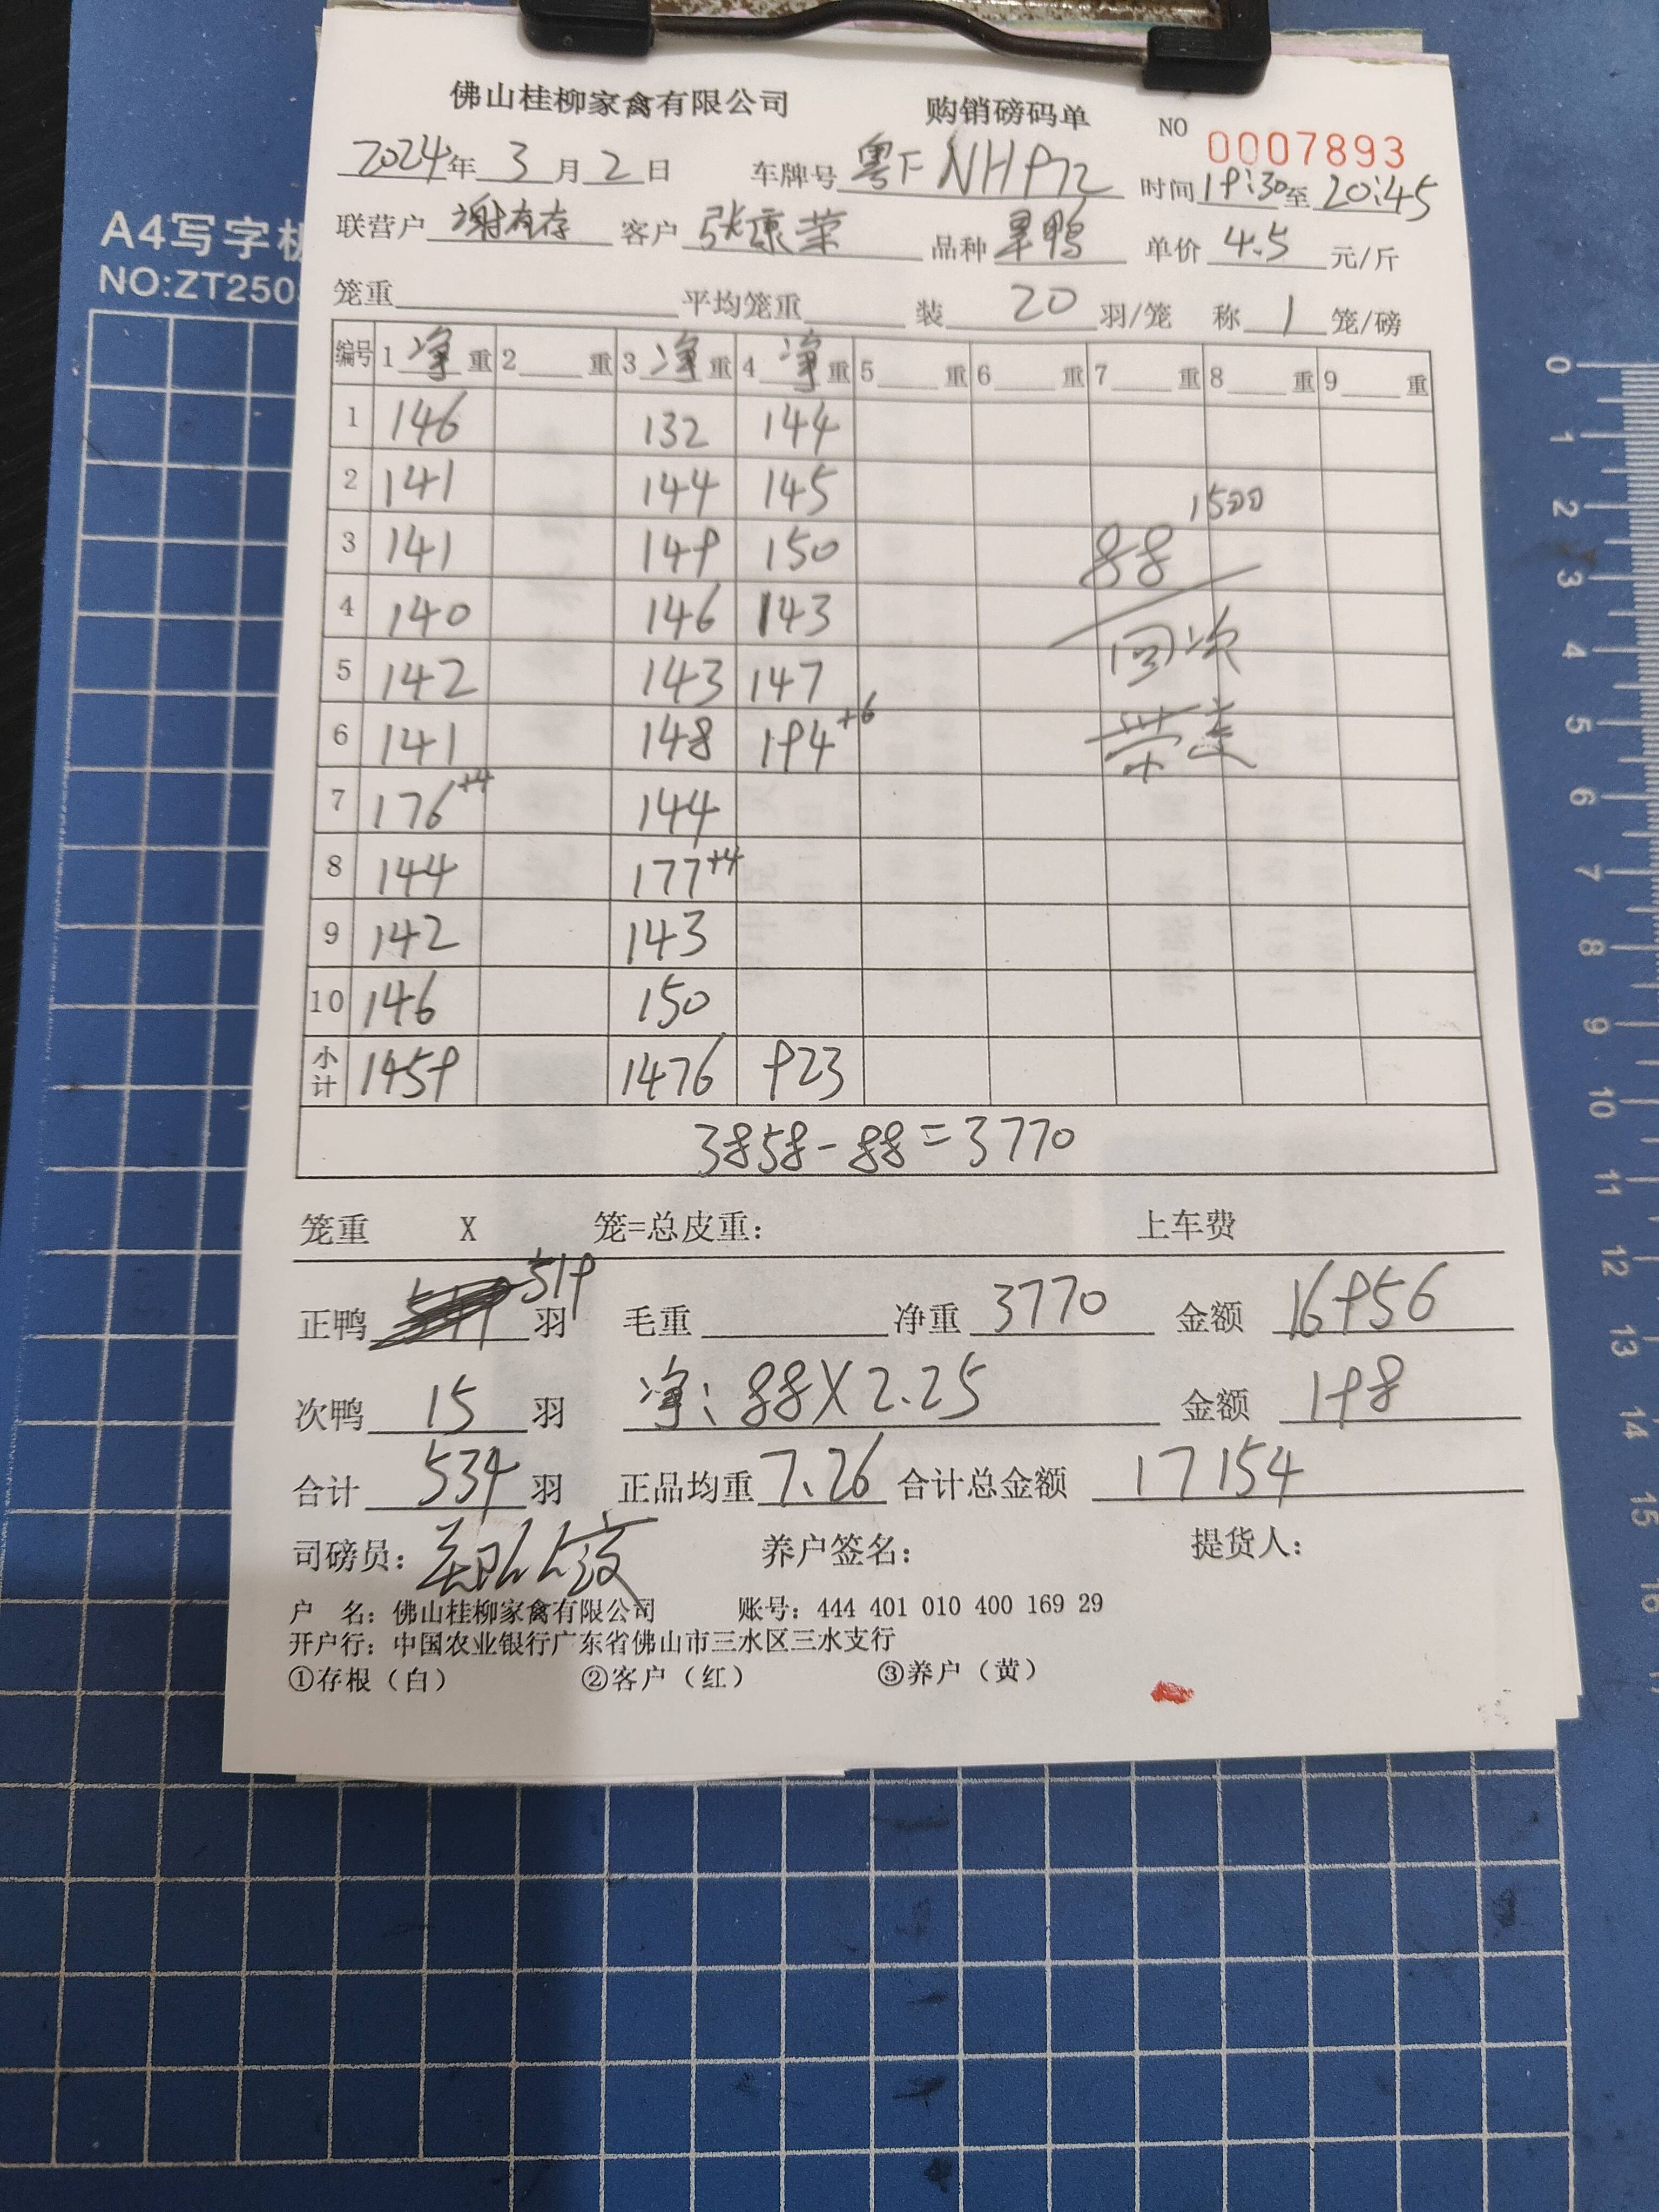 佛山桂柳家禽有限公司 购销磅码单 NO 0007893
2024年3月2日 车牌号 粤F NHP72 时间 19:30至20:45
联营户 谢有存 客户 张康荣 品种 旱鸭 单价 4.5 元/斤
笼重 平均笼重 装 20 羽/笼 称 1 笼/磅
编号 1 净 重 2 重 3 净 重 4 净 重 5 重 6 重 7 重 8 重 9 重
1 146 132 144
2 141 144 145 1500
3 141 149 150 88
4 140 146 143 回次
5 142 143 147
6 141 148 194+6
7 176+4 144
8 144 177+4
9 142 143
10 146 150
小计 1459 1476 923
3858-88=3770
笼重 X 笼=总皮重: 上车费
正鸭 519 羽 毛重 净重 3770 金额 16956
次鸭 15 羽 净: 88X2.25 金额 198
合计 534 羽 正品均重 7.26 合计总金额 17154
司磅员: 养户签名: 提货人:
户 名: 佛山桂柳家禽有限公司 账号: 444 401 010 400 169 29
开户行: 中国农业银行广东省佛山市三水区三水支行
①存根(白) ②客户(红) ③养户(黄)
A4写字板
NO:ZT250
0
1
2
3
4
5
6
7
8
9
10
11
12
13
14
15
16